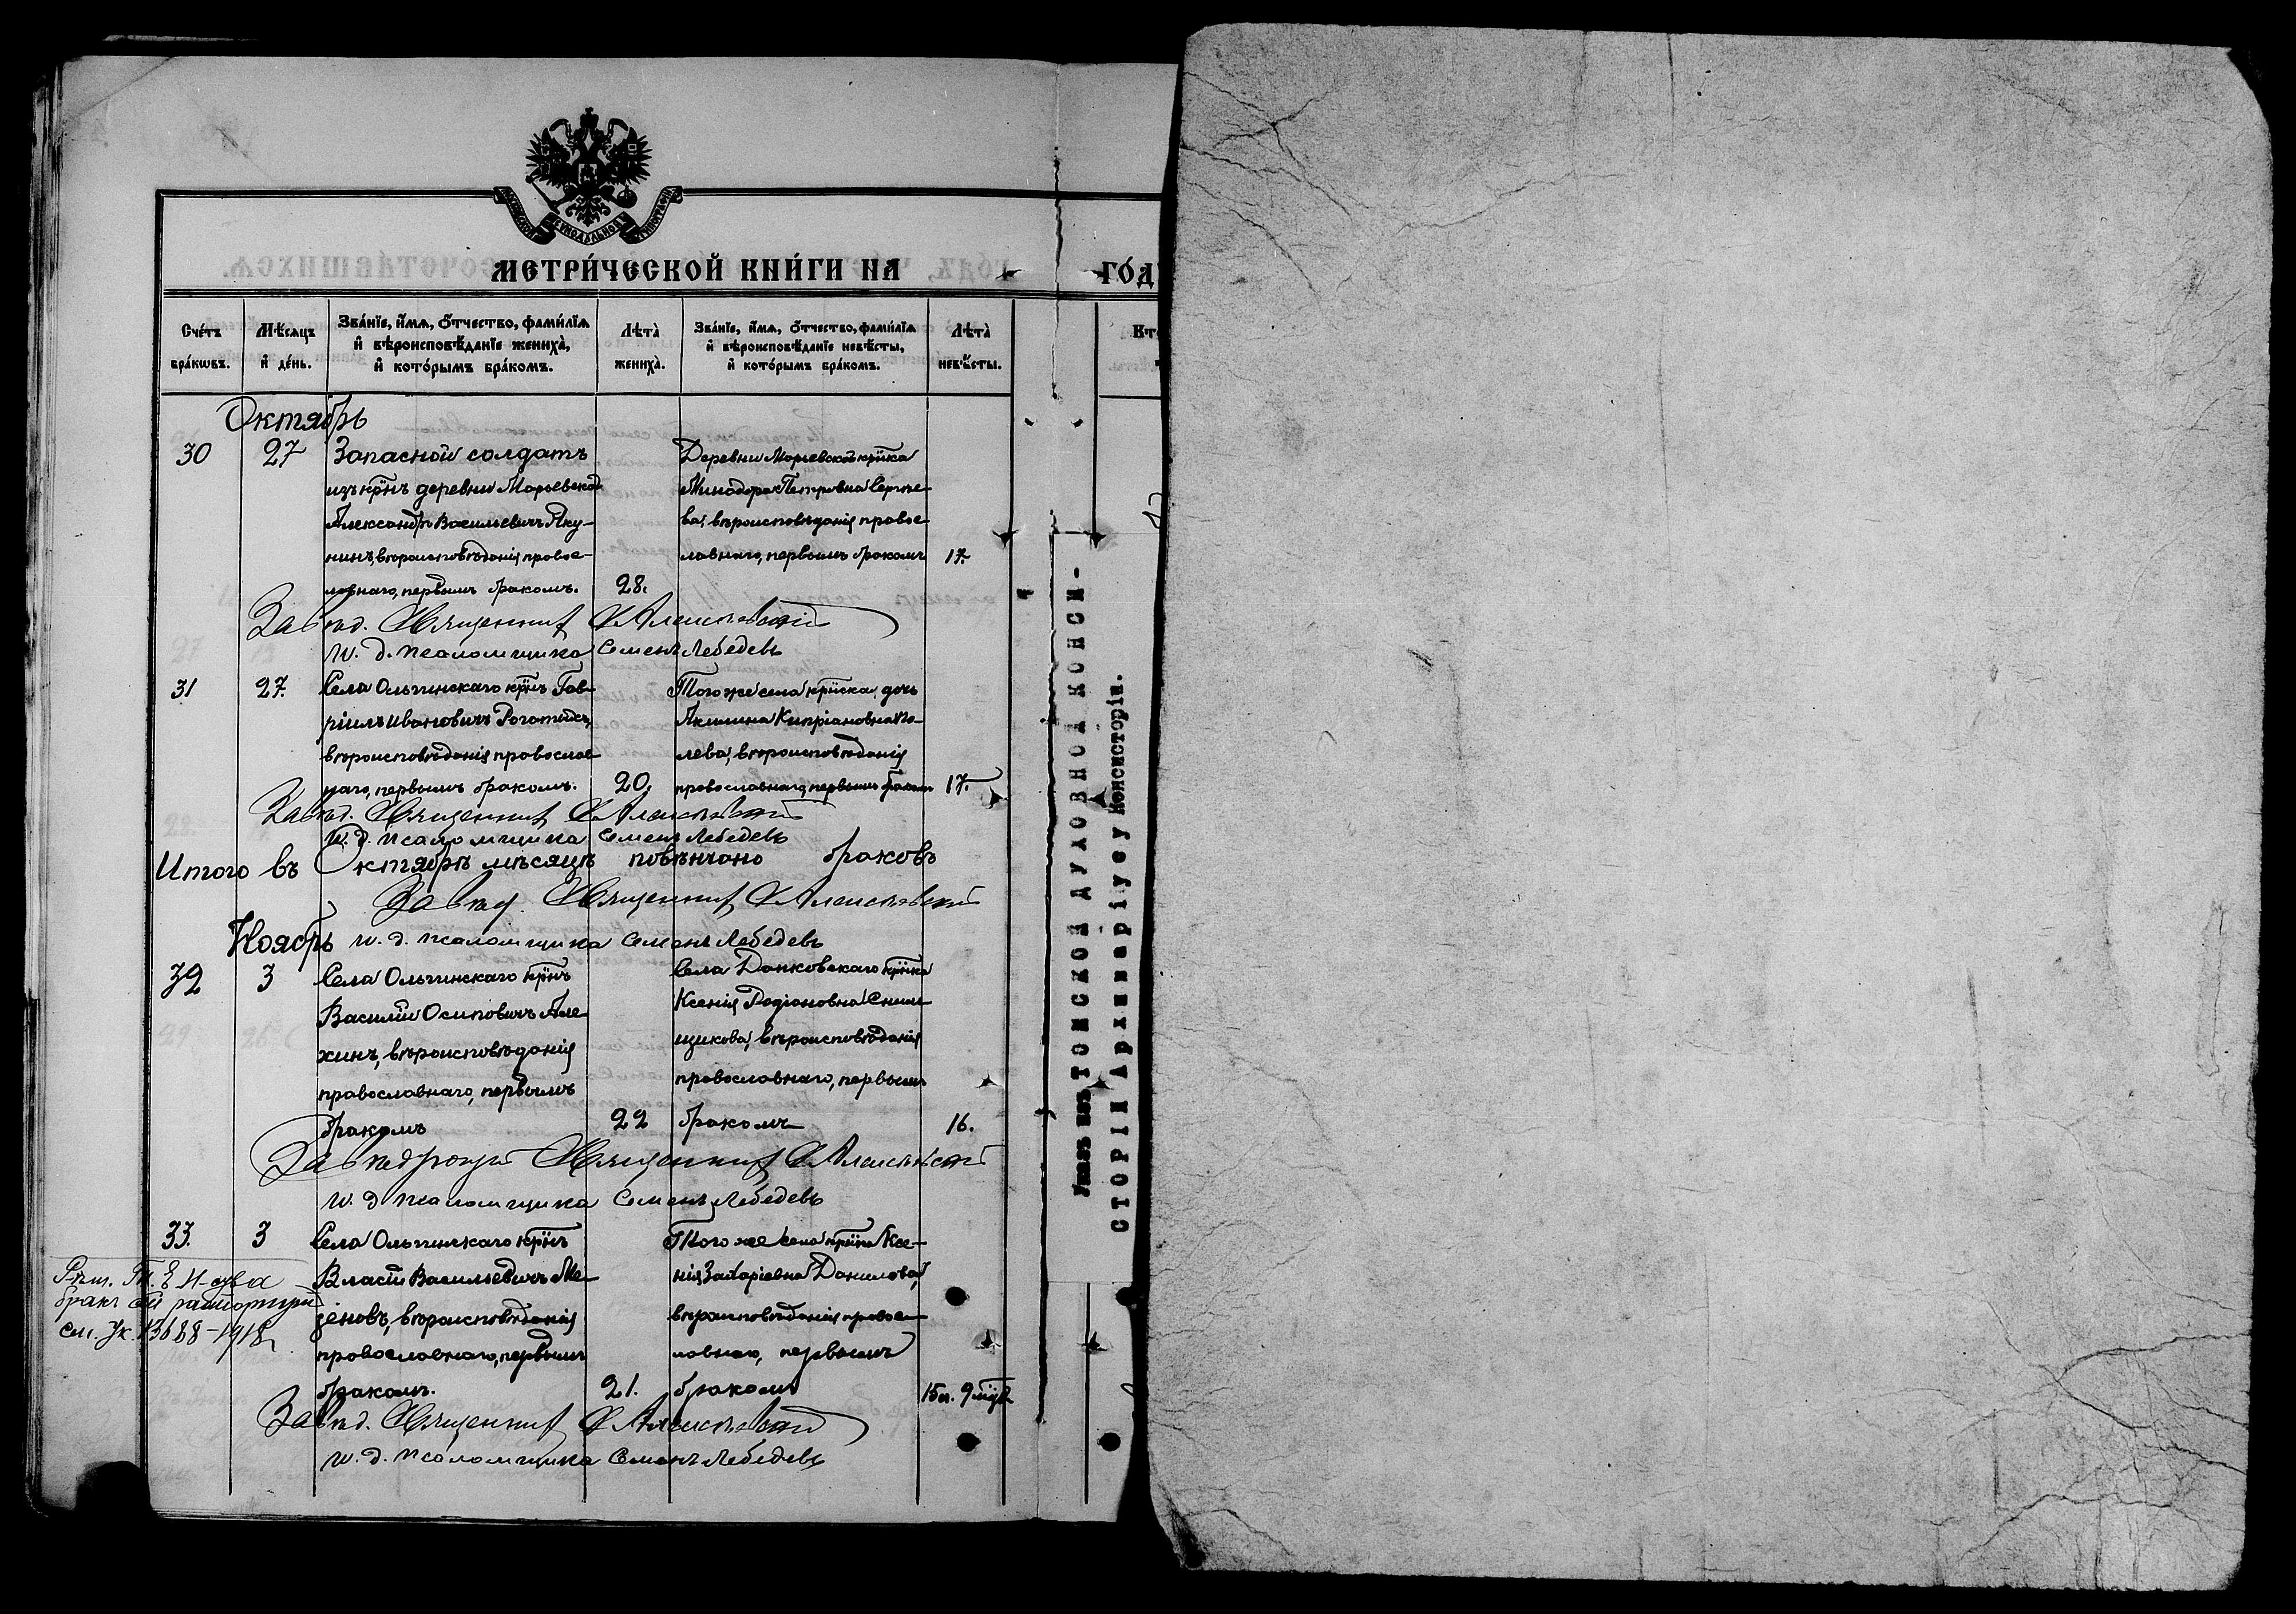 МЕТРИ́ЧЕСКОЙ КНИ́ГИ НА
ГО́Д
Сче́тъ бра́кѡвъ.
Мѣ́сѧцъ и҆ де́нь.
Зва́нїе, и҆́мѧ, ѻ҆́тчество, фамѝлїѧ
и҆ вѣроисповѣ́данїе жениха̀,
и҆ кото́рымъ бра́комъ.
Лѣта̀ жениха̀.
Зва́нїе, и҆́мѧ, ѻ҆́тчество, фамѝлїѧ
и҆ вѣроисповѣ́данїе невѣ́сты,
и҆ кото́рымъ бра́комъ.
Лѣта̀ невѣ́сты.
Октябрь
30 27
Запасной солдатъ
изъ крнъ деревни Марьевской
Александръ Васильевичъ Яку-
нинъ, вѣроисповѣданія правос-
лавнаго, первымъ бракомъ. 28.
Деревни Марьевской крнка
Минадора Петровна Сергее-
ва, вѣроисповѣданія правос-
лавнаго, первымъ бракомъ 17.
Завѣд. Священник
и. д. псаломщика Семенъ Лебедевъ
31 27.
Села Ольгинскаго крнъ Гав-
ріилъ Ивановичъ
вѣроисповѣданія православ-
наго, первымъ бракомъ. 20.
Того же села крнска дочь
Акилина Кипріановна По-
лева, вѣроисповѣданія
православнаго, первымъ бракомъ 17.
Завѣд. Священник
и. д. псаломщика Семенъ Лебедевъ
Итого въ Октябрѣ мѣсяцѣ повѣнчано браковъ
Завѣд. Священник
Ноябрь и. д. псаломщика Семенъ Лебедевъ
32 3
Села Ольгинскаго крнъ
Василій Осиповичъ Але-
хинъ, вѣроисповѣданія
православнаго, первымъ
бракомъ 22
Села Донковскаго крнка
Ксенія Родіоновна
щикова, вѣроисповѣданія
православнаго, первымъ
бракомъ 16.
Завѣдующій Священник
и. д. псаломщика Семенъ Лебедевъ
33. 3
Села Ольгинскаго крнъ
Власій Васильевичъ Ме-
зеновъ, вѣроисповѣданія
православнаго, первымъ
бракомъ. 21.
Того же села крнка Ксе-
нія Захаріевна Данилова,
вѣроисповѣданія правос-
лавнаго, первымъ
бракомъ 15 л. 9 мцв
бракъ сей расторгнутъ
см. Ук. 13688-1918
Завѣд. Священник
и. д. псаломщика Семенъ Лебедевъ
Указъ изъ ТОМСКОЙ ДУХОВНОЙ КОНСИ-
СТОРІИ Архиваріусу Консисторіи.